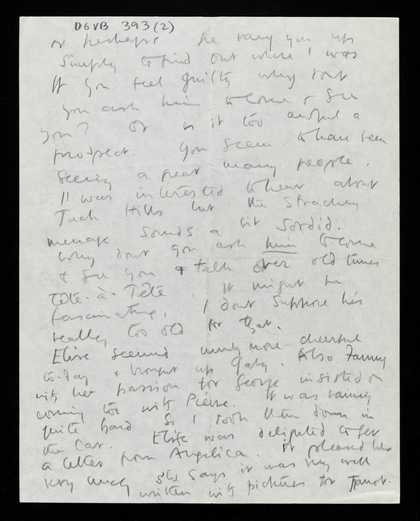 DGVB 393(2)
or perhaps he rang you up
simply to find out where I was
If you feel guilty why dont
you ask him to come & see
you? Or is it too awful a
prospect. You seem to have been
seeing a great many people.
I was interested to hear about
Tuck Hills but the Strachey
menage sounds a bit sordid.
Why dont you ask him to come
& see you & talk over old times
Tête-à-Tête It might be
fascinating. I dont suppose he's
really too old for that.
Elise seemed much more cheerful
to-day & brought up Gaby. Also Fanny
with her passion for George insisted on
coming too with Pierre. It was raining
quite hard so I took them down in
the car. Elise was delighted to get
a letter from Angelica. It pleased her
very much she says it was very well
written with pictures for